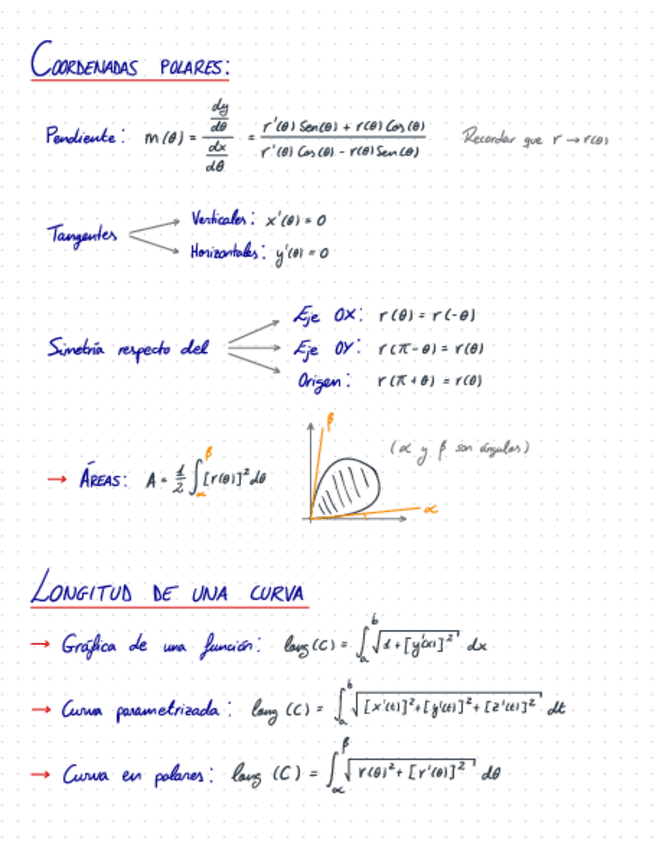 COORDENADAS POLARES:
Pendiente: m(θ) = (dy/dθ)/(dx/dθ) = (r'(θ) Sen(θ) + r(θ) Cos(θ))/(r'(θ) Cos(θ) - r(θ) Sen(θ)) Recordar que r → r(θ)
Tangentes
Verticales: x'(θ) = 0
Horizontales: y'(θ) = 0
Simetría respecto del
Eje OX: r(θ) = r(-θ)
Eje OY: r(π-θ) = r(θ)
Origen: r(π+θ) = r(θ)
→ ÁREAS: A = 1/2 ∫_α^β [r(θ)]² dθ
β
α
(α y β son ángulos)
LONGITUD DE UNA CURVA
→ Gráfica de una función: long(C) = ∫_a^b √(1+[y'(x)]²) dx
→ Curva parametrizada: long (C) = ∫_a^b √([x'(t)]²+[y'(t)]²+[z'(t)]²) dt
→ Curva en polares: long (C) = ∫_α^β √(r(θ)²+[r'(θ)]²) dθ